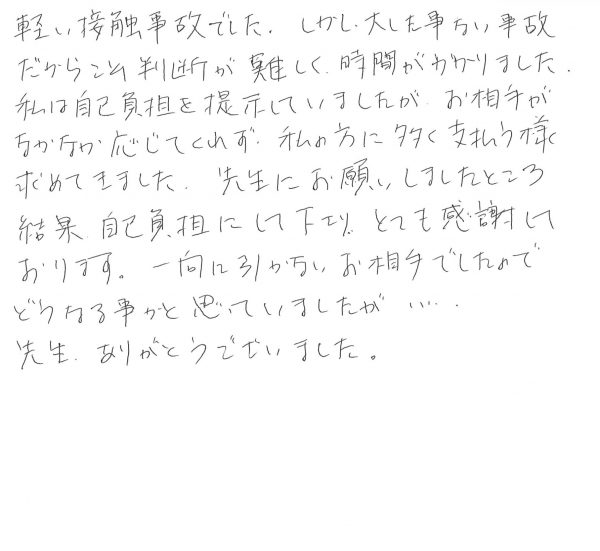 軽い接触事故でした. しかし、大した事ない事故
だからこそ判断が難しく、時間がかかりました.
私は自己負担を提示していましたが、お相手が
なかなか応じてくれず、私の方に多く支払う様
求めてきました. 先生にお願いしましたところ
結果、自己負担にして下さり、とても感謝して
おります。一向に引かないお相手でしたので
どうなる事かと思っていましたが…..
先生、ありがとうございました。